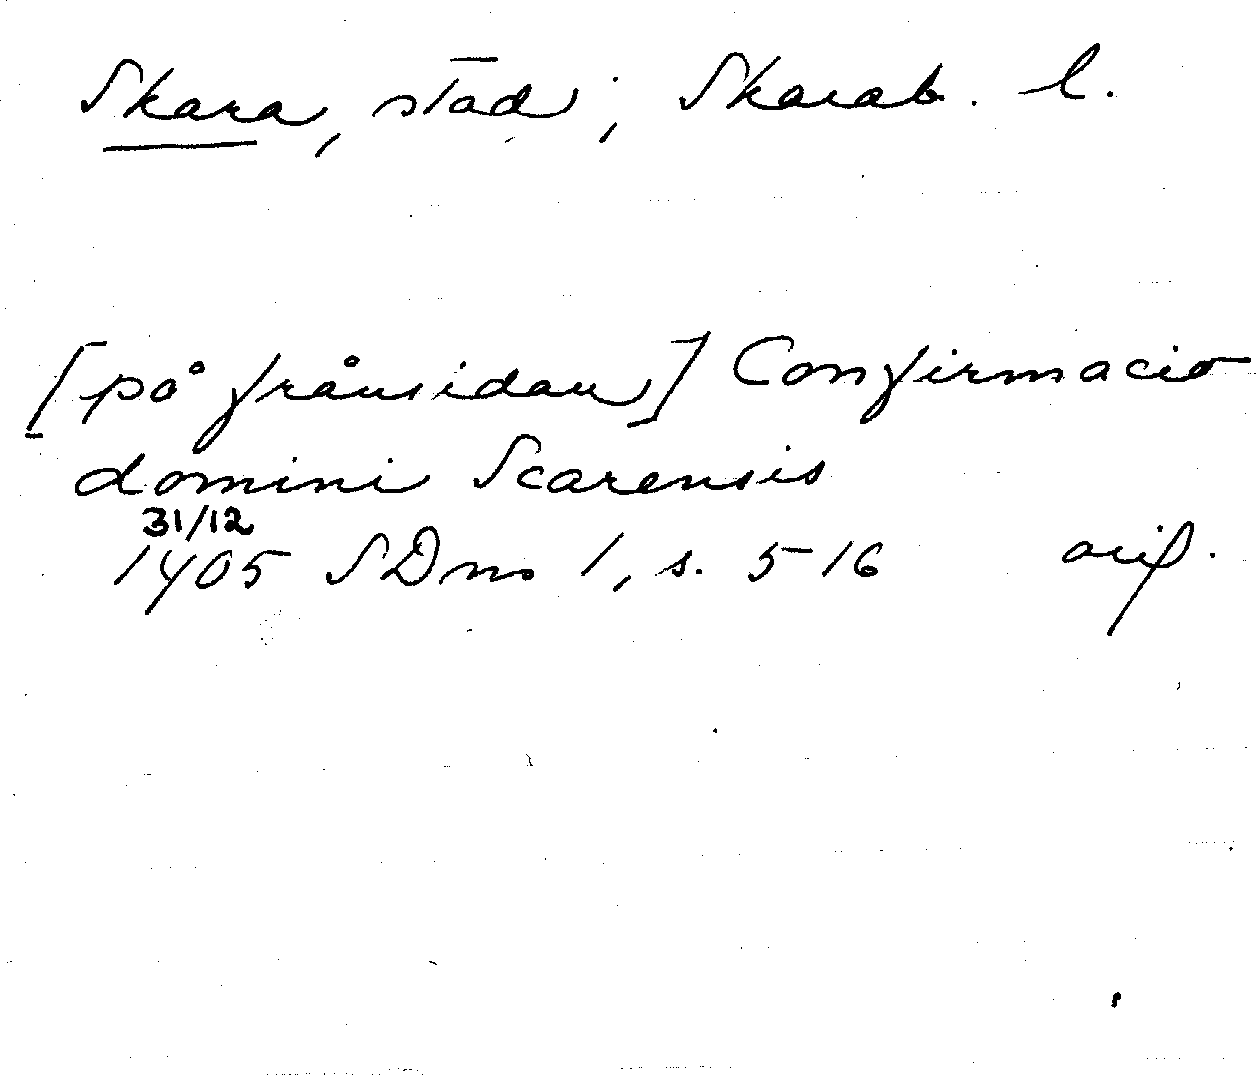 Skara, stad; Skarab. l.
[på frånsidan] Confirmacio
domini Scarensis
31/12
1405 SDns 1, s. 516 orig.